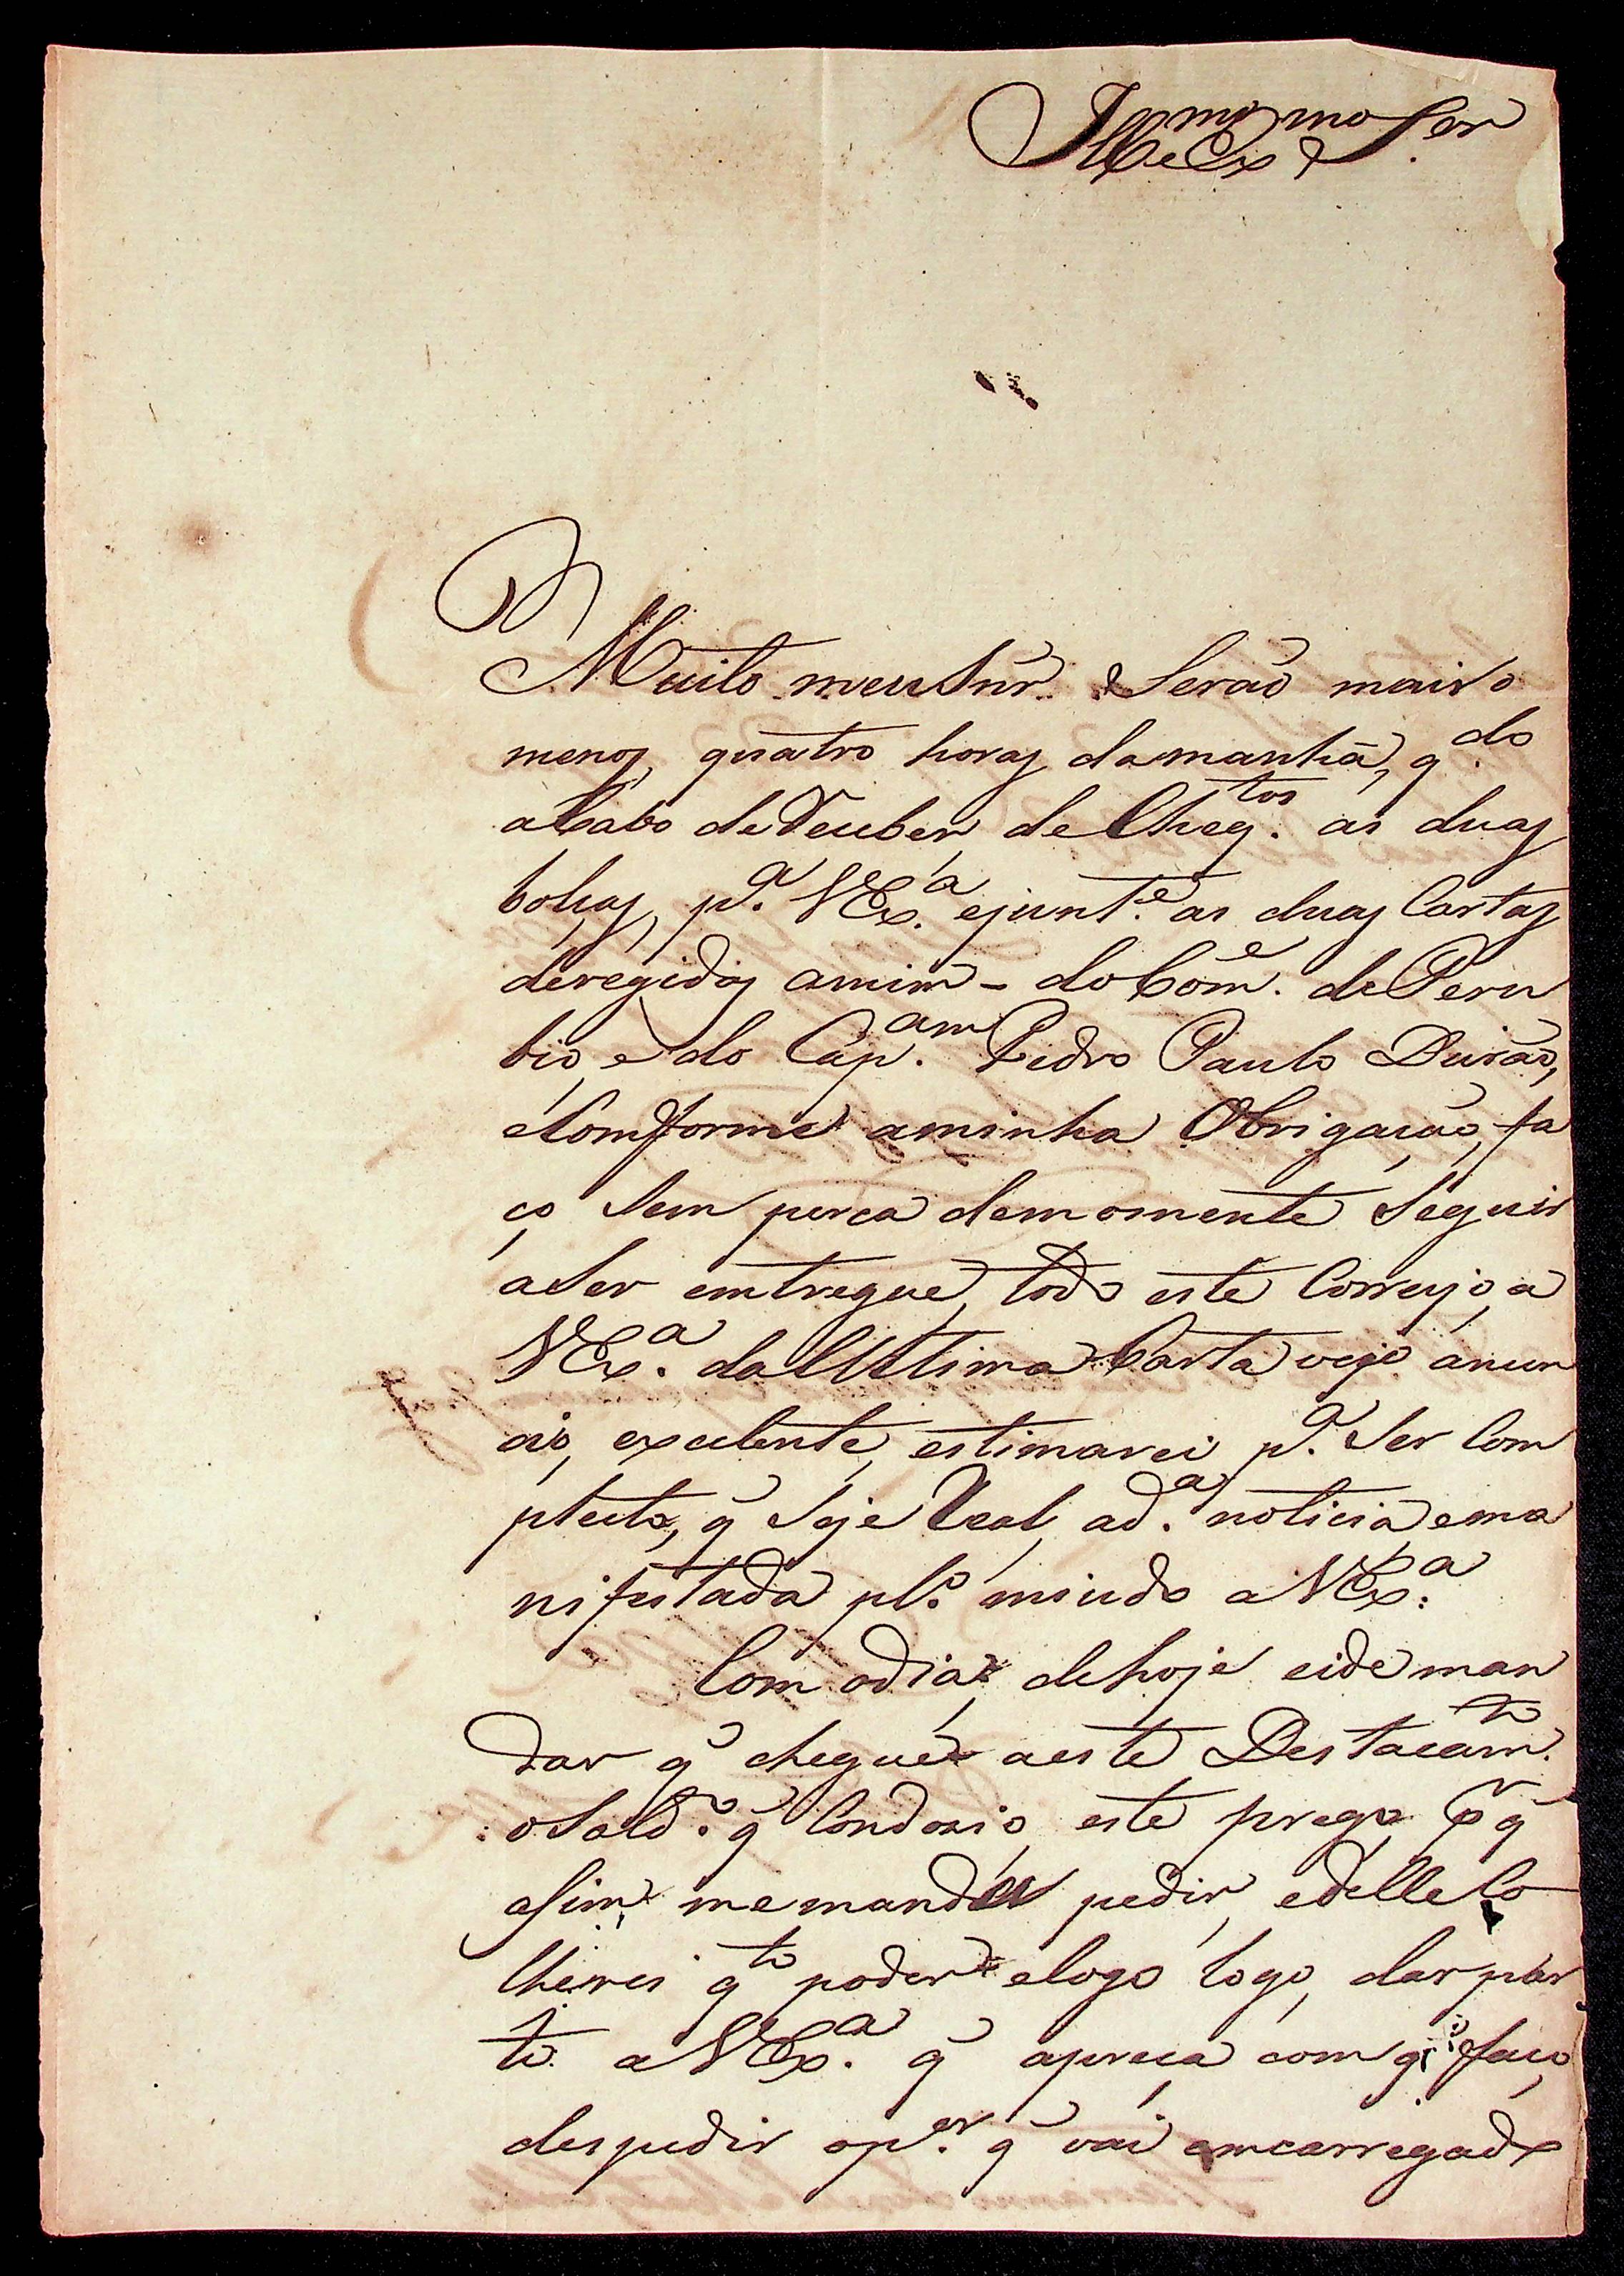 Ill.mo e Ex.mo Sr.
Muito meu Snr. Serão mais o
menos quatro horas damanhã, q.do
acabo de Receber de Cheg.tos as duas
bolsas, p.a VEx.a ejunt.e as duas Cartas
deregidas amim - do Com.e de Peru
bio, e do Cap.am Pedro Paulo Durão,
eComforme aminha Obrigação, fa
ço Sem perca demomente Seguir
aSer emtregue, todo este Correyo, a
VEx.a dallultima Carta vejo ánun
cio, excelente, estimarei p.a Ser Com
pleto, q̃ Seje Real, ad.a noticia ema
nifestada pl.o miudo a VEx.a
Com odia, dehoje eide man
dar q̃ chegue aeste Destacam.to
oSold.o q̃ Condozio, este prego, p q̃
asim memandou pedir, edelle Co
lherei q.to poder elogo logo, dar par
te a VEx.a q̃ apreça com q̃ faço
despedir op.or q̃ vai emcarregado